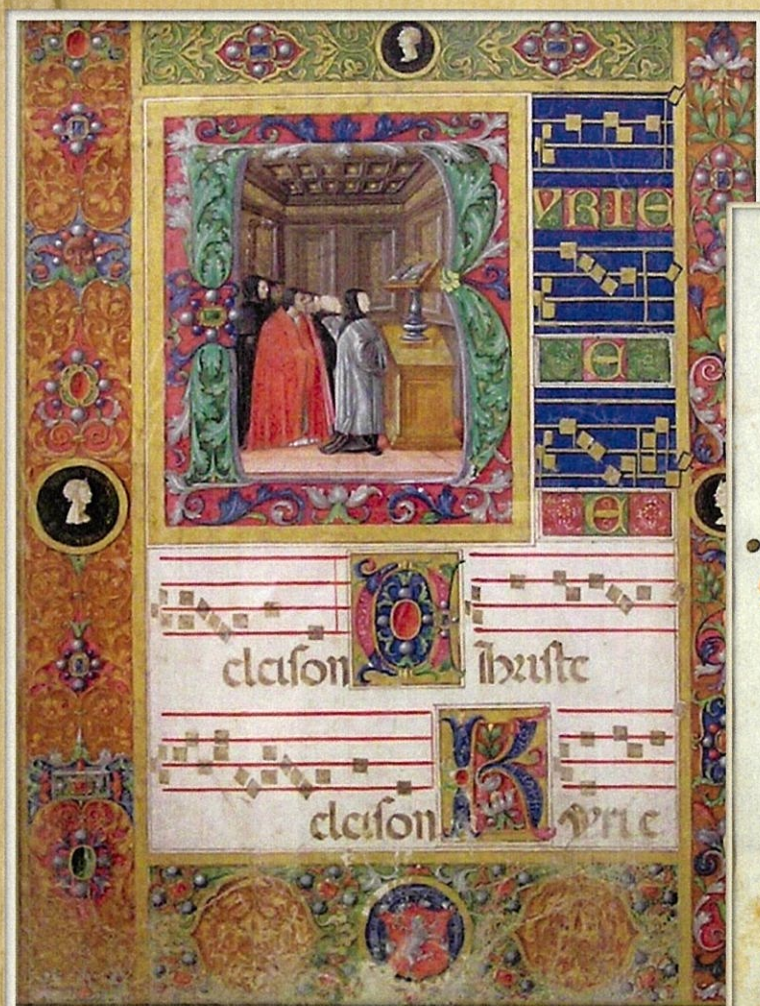 KYRIE
E
E
eleison Christe
eleison Kyrie